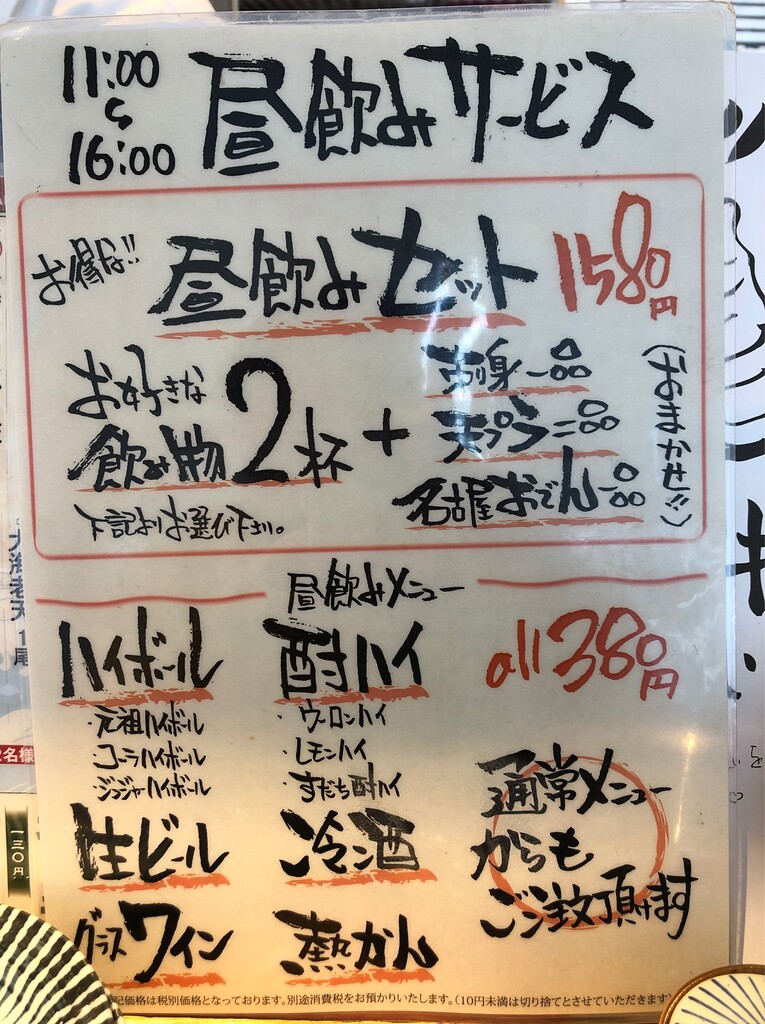 11:00
〜
16:00
昼飲みサービス
お得な!!
昼飲みセット
1580円
お好きな
飲み物2杯
+
刺身一品
天プラ二品
名古屋おでん一品
(おまかせ!!)
下記よりお選び下さい。
昼飲みメニュー
ハイボール
・元祖ハイボール
・コーラハイボール
・ジンジャーハイボール
酎ハイ
・ウーロンハイ
・レモンハイ
・すだち酎ハイ
all 380円
生ビール
冷酒
グラスワイン
熱かん
通常メニュー
からも
ご注文頂けます
記価格は税別価格となっております。別途消費税をお預かりいたします。(10円未満は切り捨てとさせていただきます)
大海老天 1尾
2名様
一三〇円